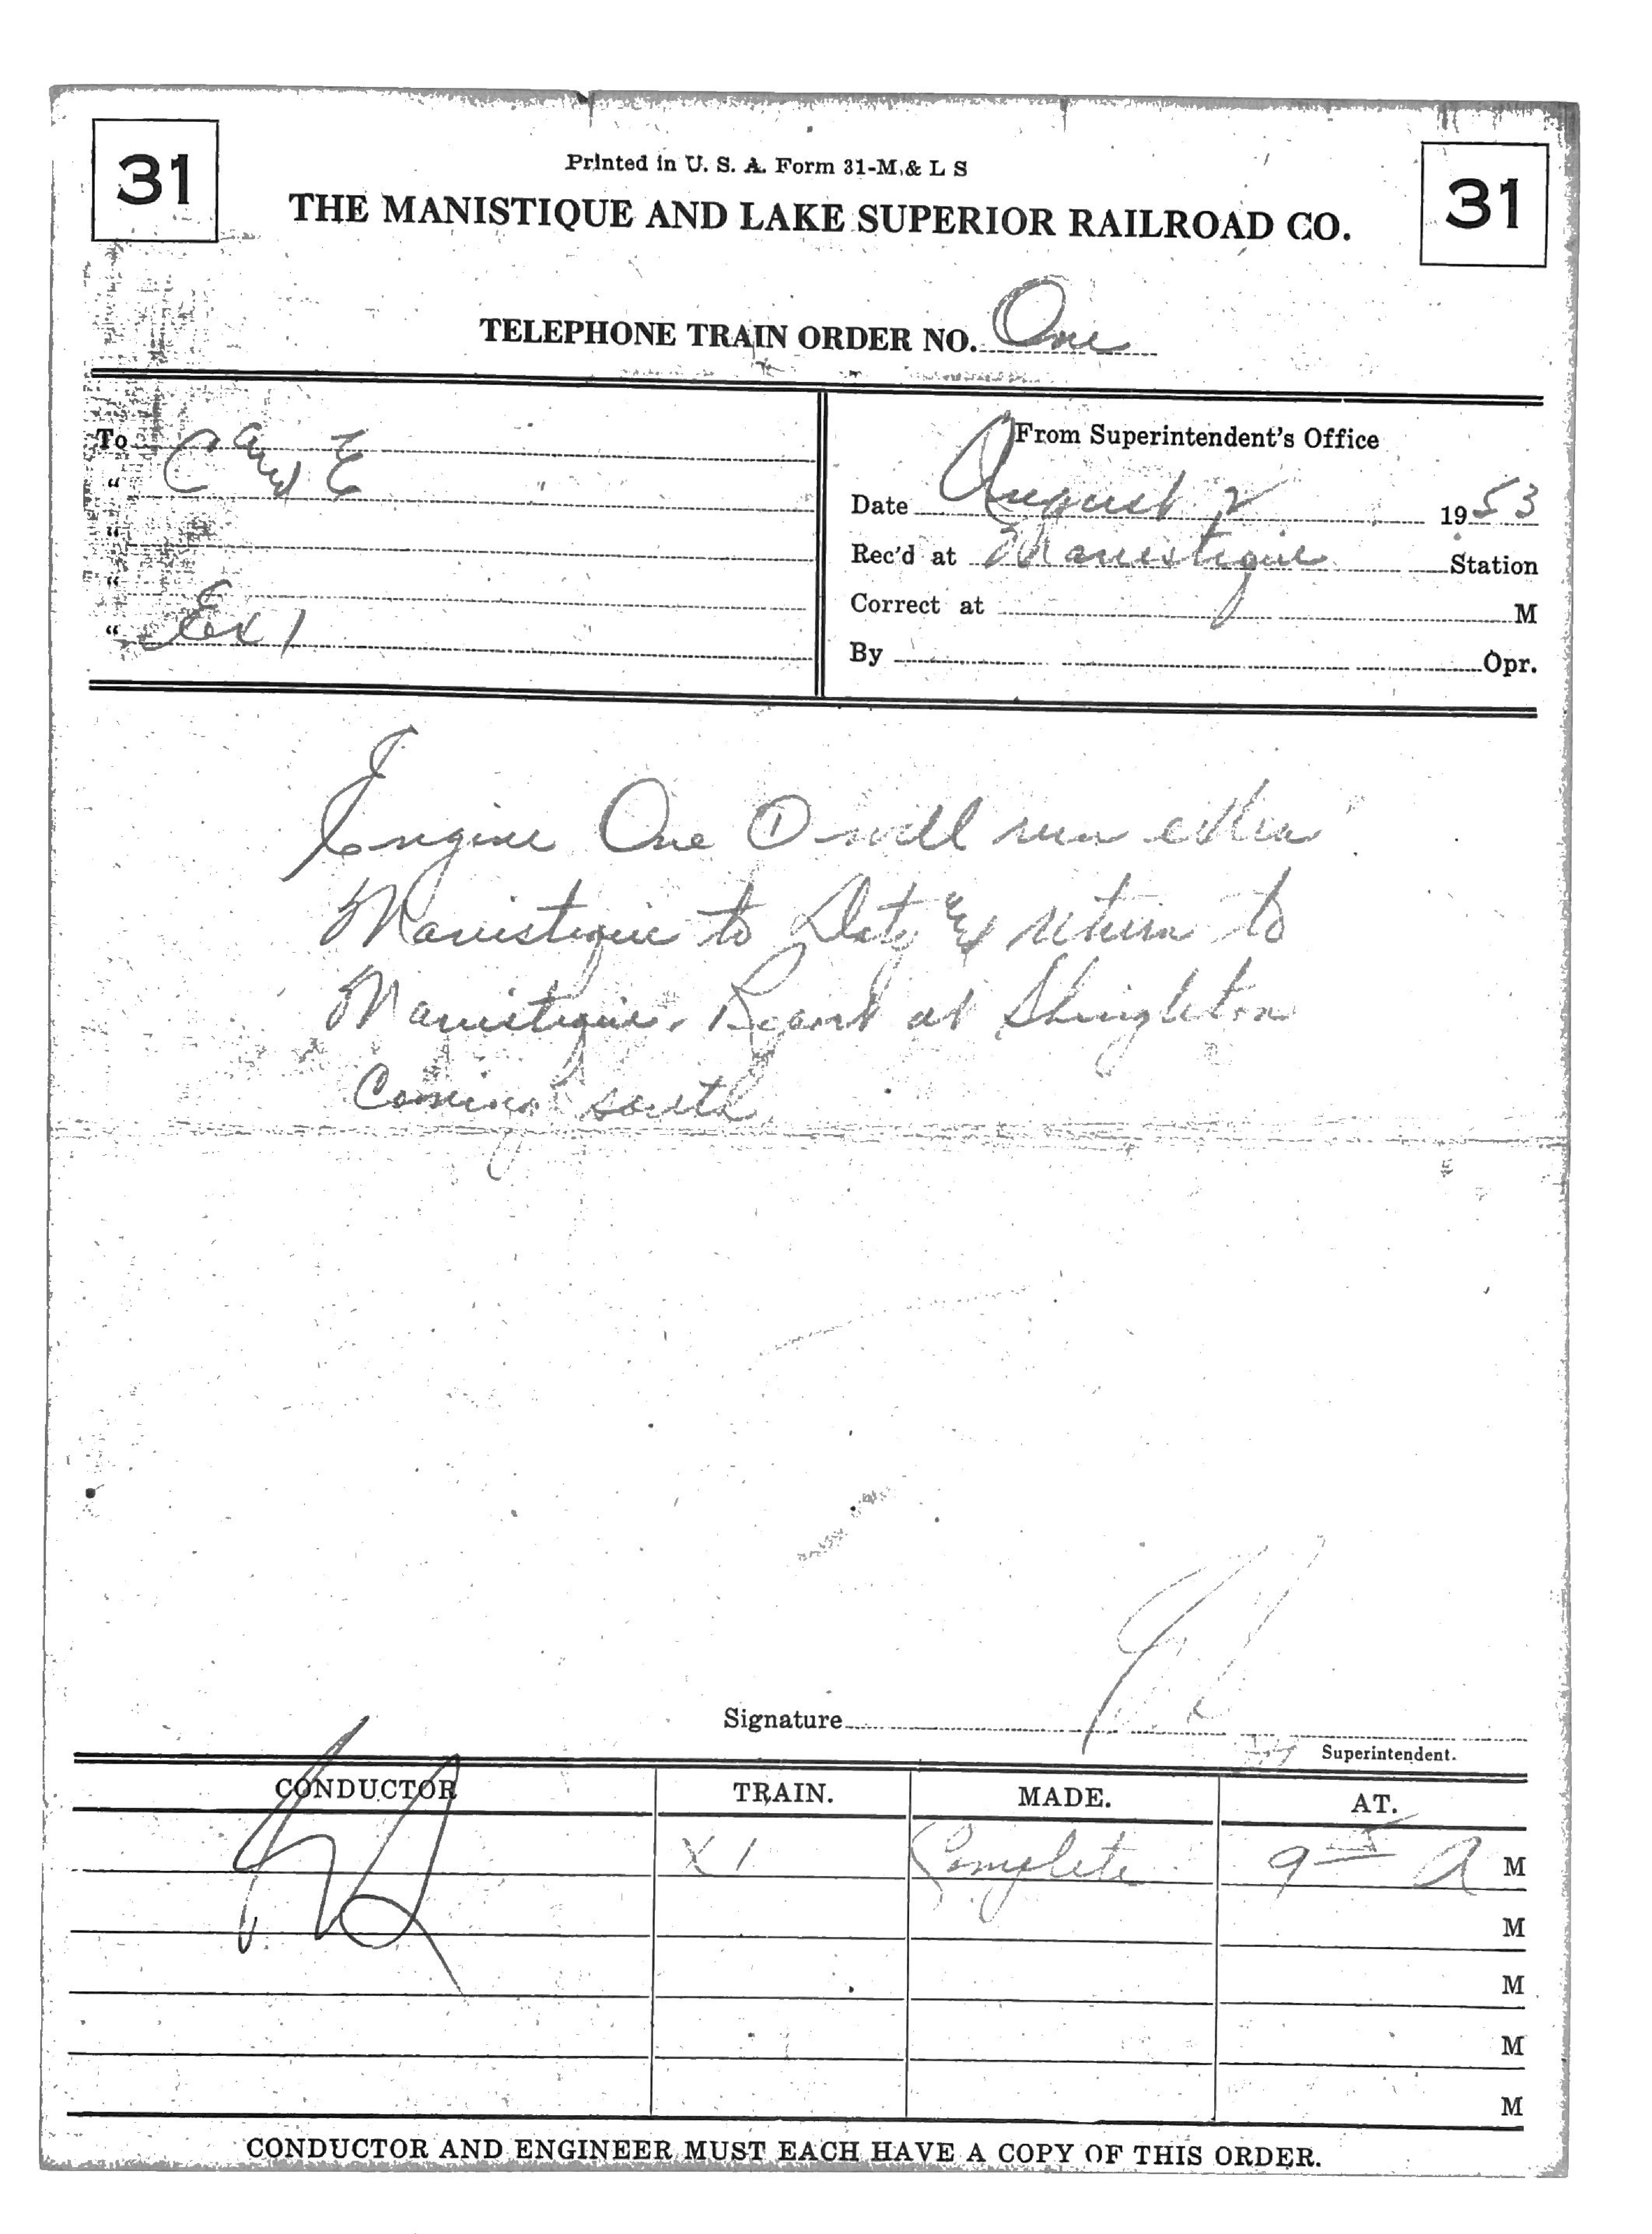 31
31
Printed in U. S. A. Form 31-M.& L S
THE MANISTIQUE AND LAKE SUPERIOR RAILROAD CO.
TELEPHONE TRAIN ORDER NO. One
To C and E
"
"
"
" Ex 1
From Superintendent's Office
Date August 2 1953
Rec'd at Manistique Station
Correct at M
By Opr.
Engine One ① will run extra
Manistique to Doty and return to
Manistique. Report at Shingleton
Coming south
Signature
Superintendent.
CONDUCTOR TRAIN. MADE. AT.
X 1 Complete 9 A M
M
M
M
M
CONDUCTOR AND ENGINEER MUST EACH HAVE A COPY OF THIS ORDER.